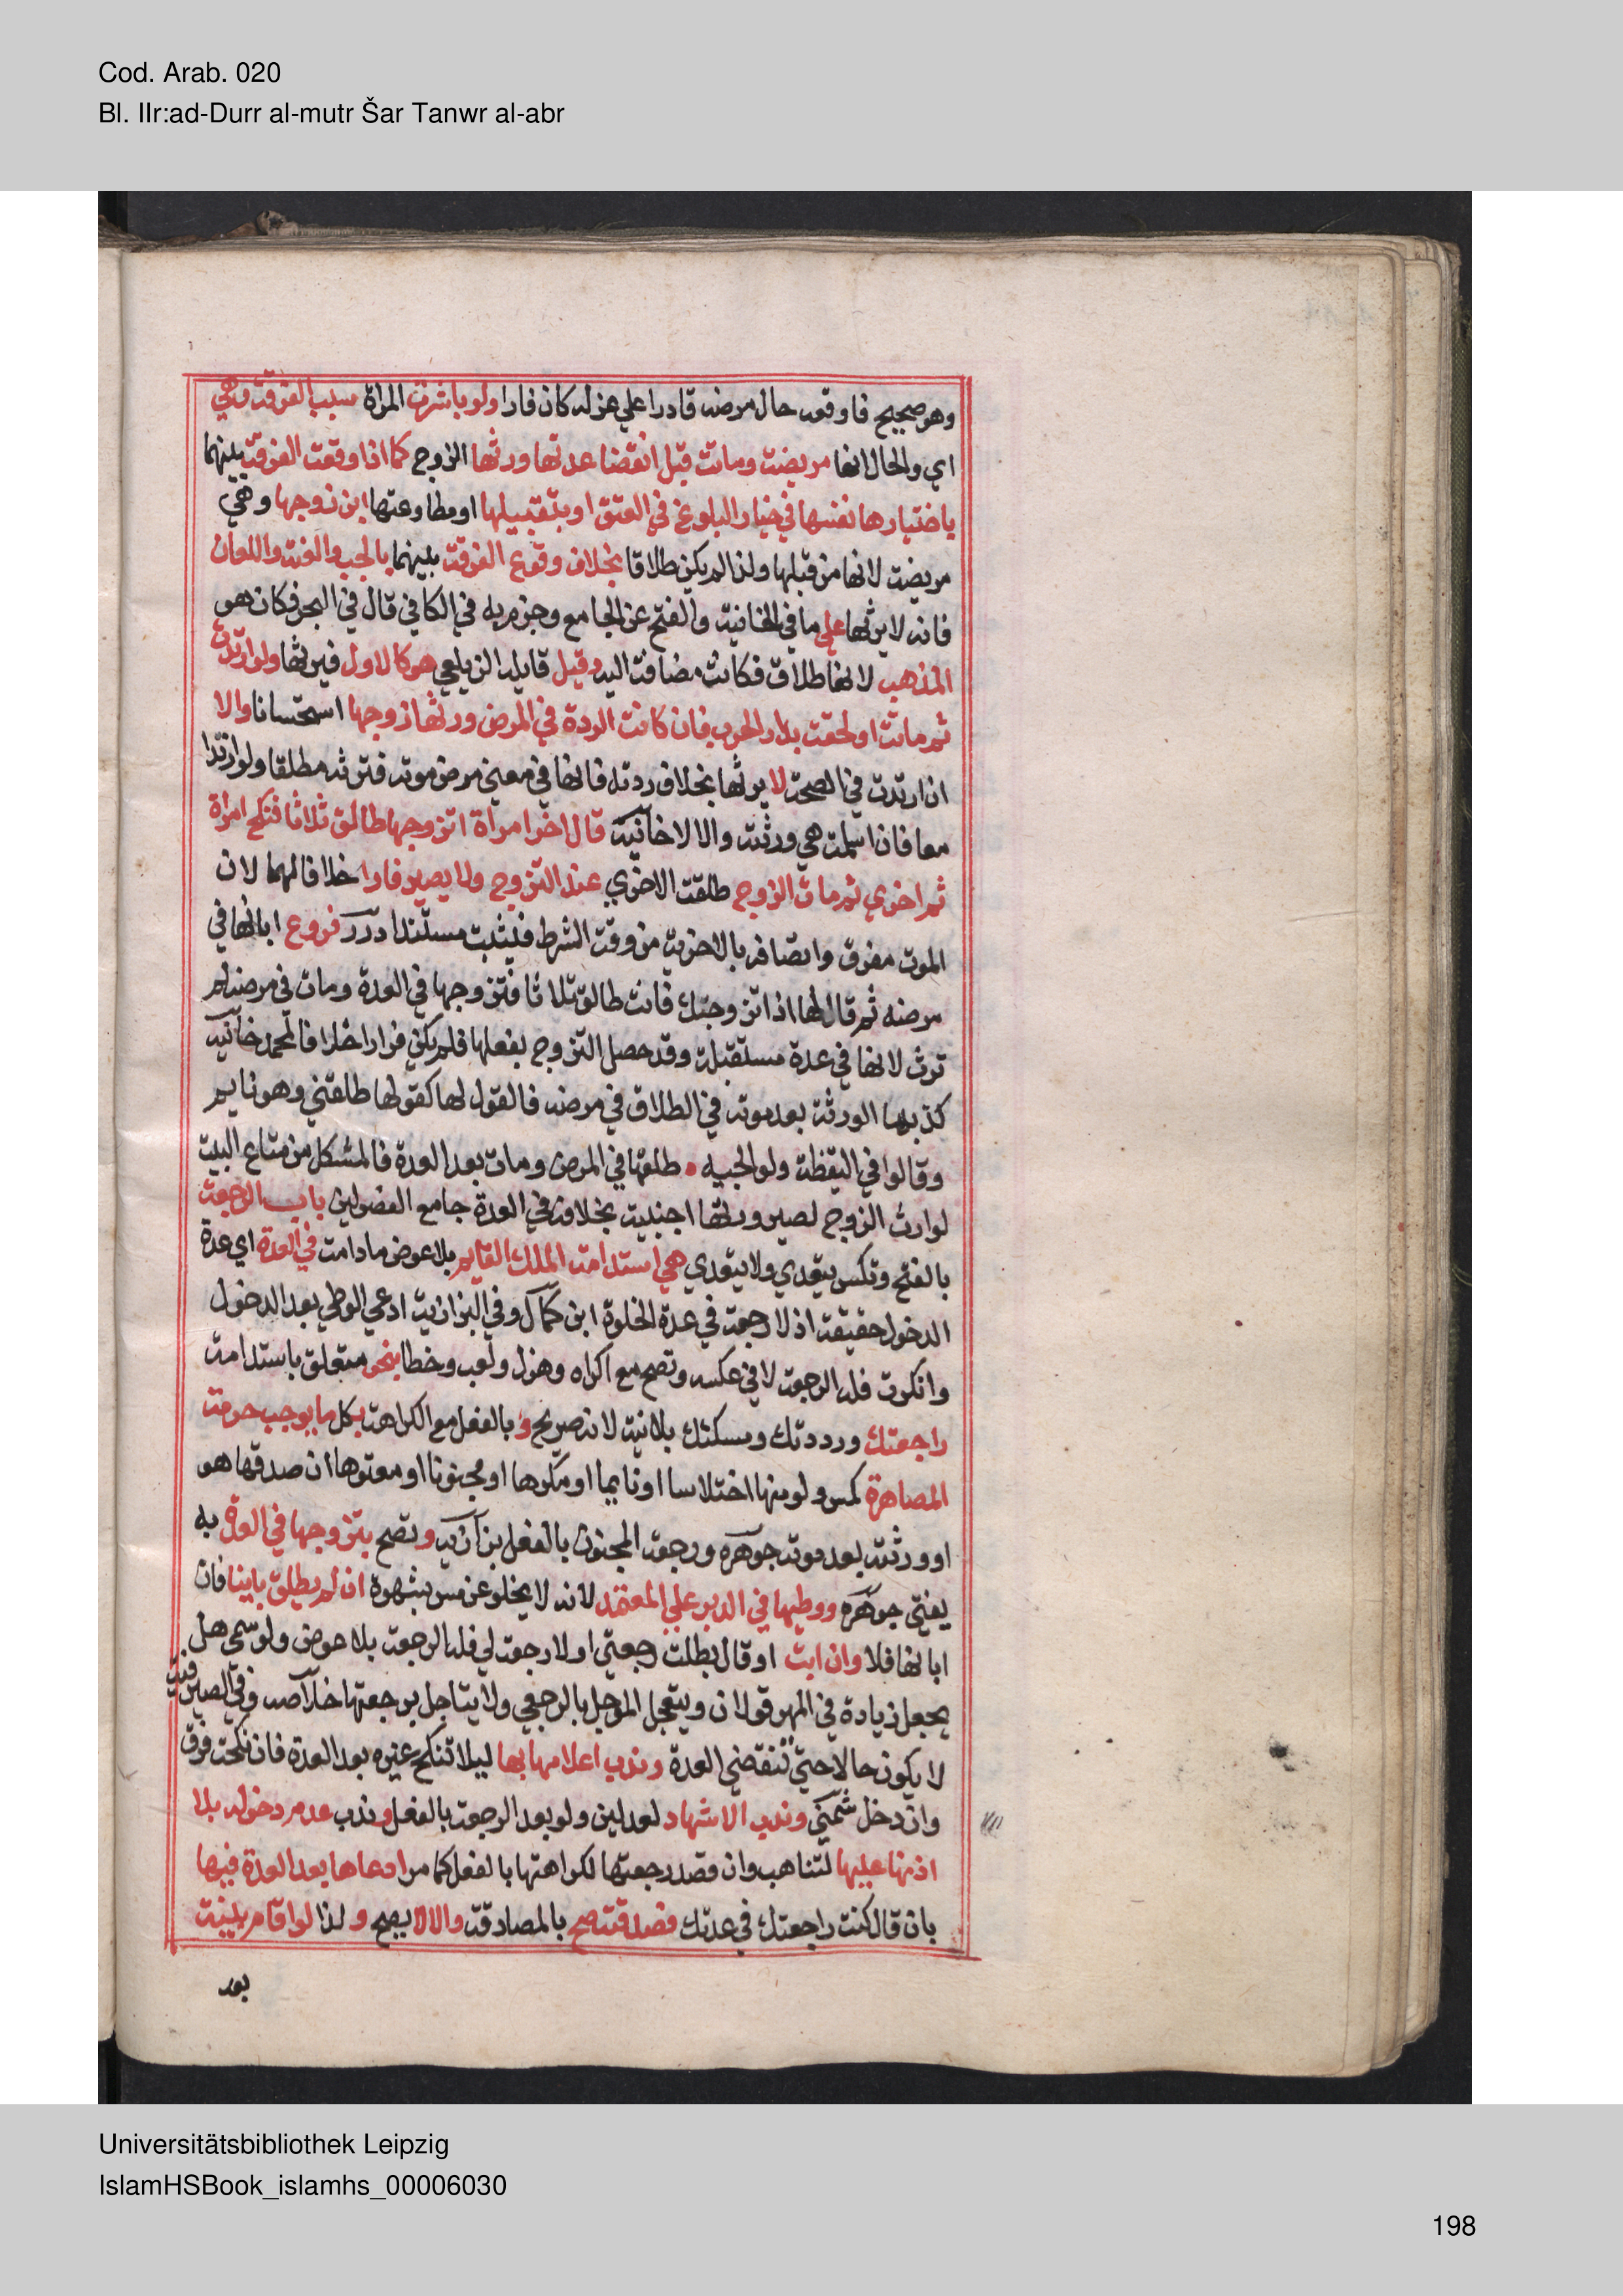 Cod. Arab. 020
Bl. IIr:ad-Durr al-mutr Šar Tanwr al-abr
وهو صحيح فاوقعه حال مرضه قادرا علي عزله كان فارا ولو باشرت المراة سبب الفرقة وهي
اي والحال انها مريضة وماتت قبل انقضا عدتها ورثها الزوج كما اذا وقعت الفرقة بينهما
باختيارها نفسها في خيار البلوغ في العتق او بتقبيلها او مطاوعتها ابن زوجها وهي
مريضة لانها من قبلها ولذا لم يكن طلاقا بخلاف وقوع الفرقة بينهما بالجب والعنة واللعان
فانه لا يرثها علي ما في الخانية والفتح عن الجامع وجزم به في الكافي قال في البحر فكان هو
المذهب لانها طلاق فكانت مضافة اليه وقيل قايله الزيلعي هو كالاول فيرثها ولو ارتدت
ثم ماتت او لحقت بدار الحرب فان كانت الردة في المرض ورثها زوجها استحسانا والا
ان ارتدت في الصحة لا يرثها بخلاف ردته فانها في معني مرض موته فترثه مطلقا ولو ارتدا
معا فان اسلمت هي ورثته والا لا خانية قال اخر امراة اتزوجها طالق ثلاثا فنكح امراة
ثم اخري ثم مات الزوج طلقت الاخري عند التزوج ولا يصير فارا خلافا لهما لان
الموت مفرق واتصافه بالاخرية من وقت الشرط فيثبت مستندا درر فروع ابانها في
مرضه ثم قال لها اذا تزوجتك فانت طالق ثلاثا فتزوجها في العدة ومات في مرضه لم
ترث لانها في عدة مستقبلة وقد حصل التزوج بفعلها فلم يكن فرارا خلافا لمحمد خانية
كذبها الورثة بعد موته في الطلاق في مرضه فالقول لها كقولها طلقني وهو نايم
وقالوا في اليقظة ولوالجيه • طلقها في المرض ومات بعد العدة فالمشكل من متاع البيت
لوارث الزوج لصيرورتها اجنبية بخلافه في العدة جامع الفصولين باب الرجعة
بالفتح وتكسر يتعدي ولا يتعدي هي استدامة الملك القايم بلا عوض ما دامت في العدة اي عدة
الدخول حقيقة اذ لا رجعة في عدة الخلوة ابن كمال وفي البزازية ادعي الوطي بعد الدخول
وانكرت فله الرجعة لا في عكسه وتصح مع اكراه وهزل ولعب وخطا بنحو متعلق باستدامة
راجعتك ورددتك ومسكتك بلا نية لانه صريح و بالفعل مع الكراهة بكل ما يوجب حرمة
المصاهرة كمس ولو منها اختلاسا او نايما او مكرها او مجنونا او معتوها ان صدقها هو
او ورثته بعد موته جوهره ورجعة المجنون بالفعل بزازية وتصح بتزوجها في العدة به
يفتي جوهره ووطيها في الدبر علي المعتمد لانه لا يخلو عن مس بشهوة ان لم يطلق باينا فان
ابانها فلا وان ابت او قال بطلت رجعتي او لا رجعة لي فله الرجعة بلا عوض ولو سمي هل
يجعل زيادة في المهر قولان ويتعجل الموجل بالرجعي ولا يتاجل برجعتها خلاصه وفي الصيرفية
لا يكون حالا حتي تنقضي العدة وندب اعلامها بها ليلا تنكح غيره بعد العدة فان نكحت فرق
وان دخل شمني وندب الاشهاد لعدلين ولو بعد الرجعة بالفعل وندب عدم دخوله بلا
اذنها عليها لتتاهب وان قصد رجعتها لكراهتها بالفعل كما مر ادعاها بعد العدة فيها
بان قال كنت راجعتك في عدتك فصدقته صح بالمصادقة والا لا يصح ولذا لو اقام بينة
بعد
Universitätsbibliothek Leipzig
IslamHSBook_islamhs_00006030
198